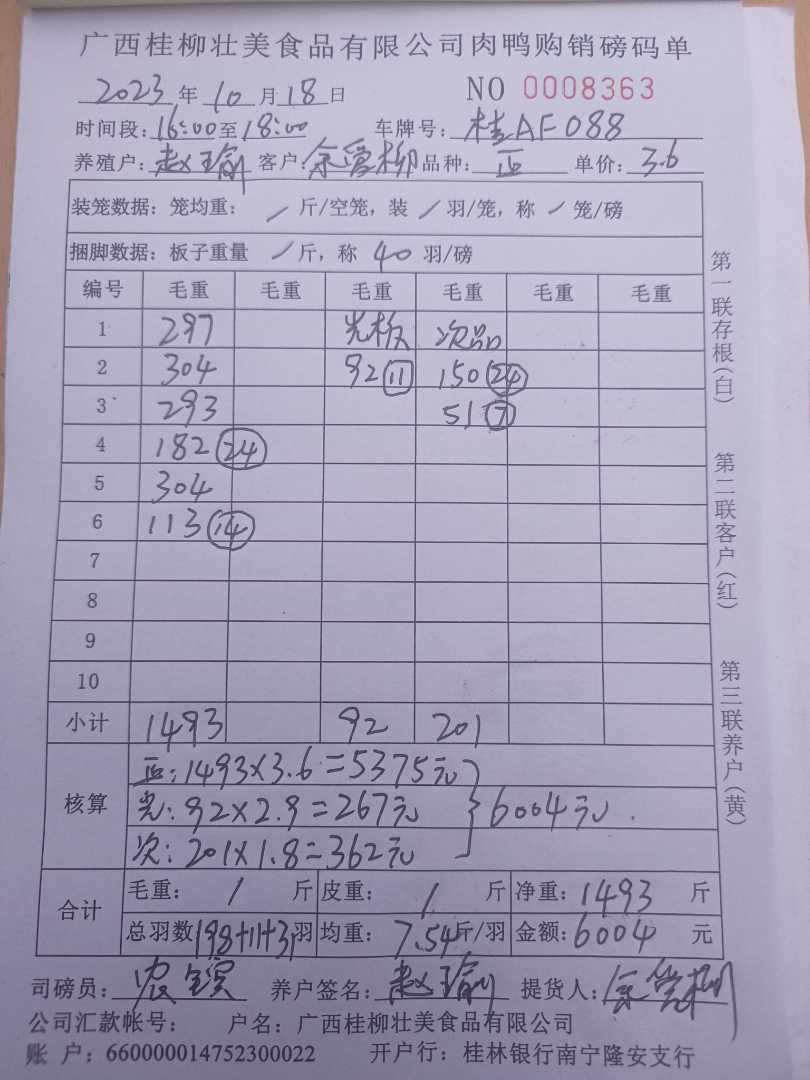 广西桂柳壮美食品有限公司肉鸭购销磅码单
2023 年 10 月 18 日 NO 0008363
时间段: 16:00 至 18:00 车牌号: 桂AF088
养殖户: 赵瑜 客户: 余爱柳 品种: 正 单价: 3.6
装笼数据: 笼均重: / 斤/空笼, 装 / 羽/笼, 称 / 笼/磅
捆脚数据: 板子重量 / 斤, 称 40 羽/磅
编号 毛重 毛重 毛重 毛重 毛重 毛重
1 297 光板 次品
2 304 92 11 150 24
3 293 51 7
4 182 24
5 304
6 113 14
7
8
9
10
小计 1493 92 201
核算
正: 1493×3.6=5375元
光: 92×2.9=267元 } 6004元.
次: 201×1.8=362元
合计
毛重: / 斤 皮重: / 斤 净重: 1493 斤
总羽数 198+11+31 羽 均重: 7.54 斤/羽 金额: 6004 元
司磅员: 养户签名: 赵瑜 提货人:
公司汇款帐号: 户名: 广西桂柳壮美食品有限公司
账 户: 660000014752300022 开户行: 桂林银行南宁隆安支行
第一联存根(白)
第二联客户(红)
第三联养户(黄)